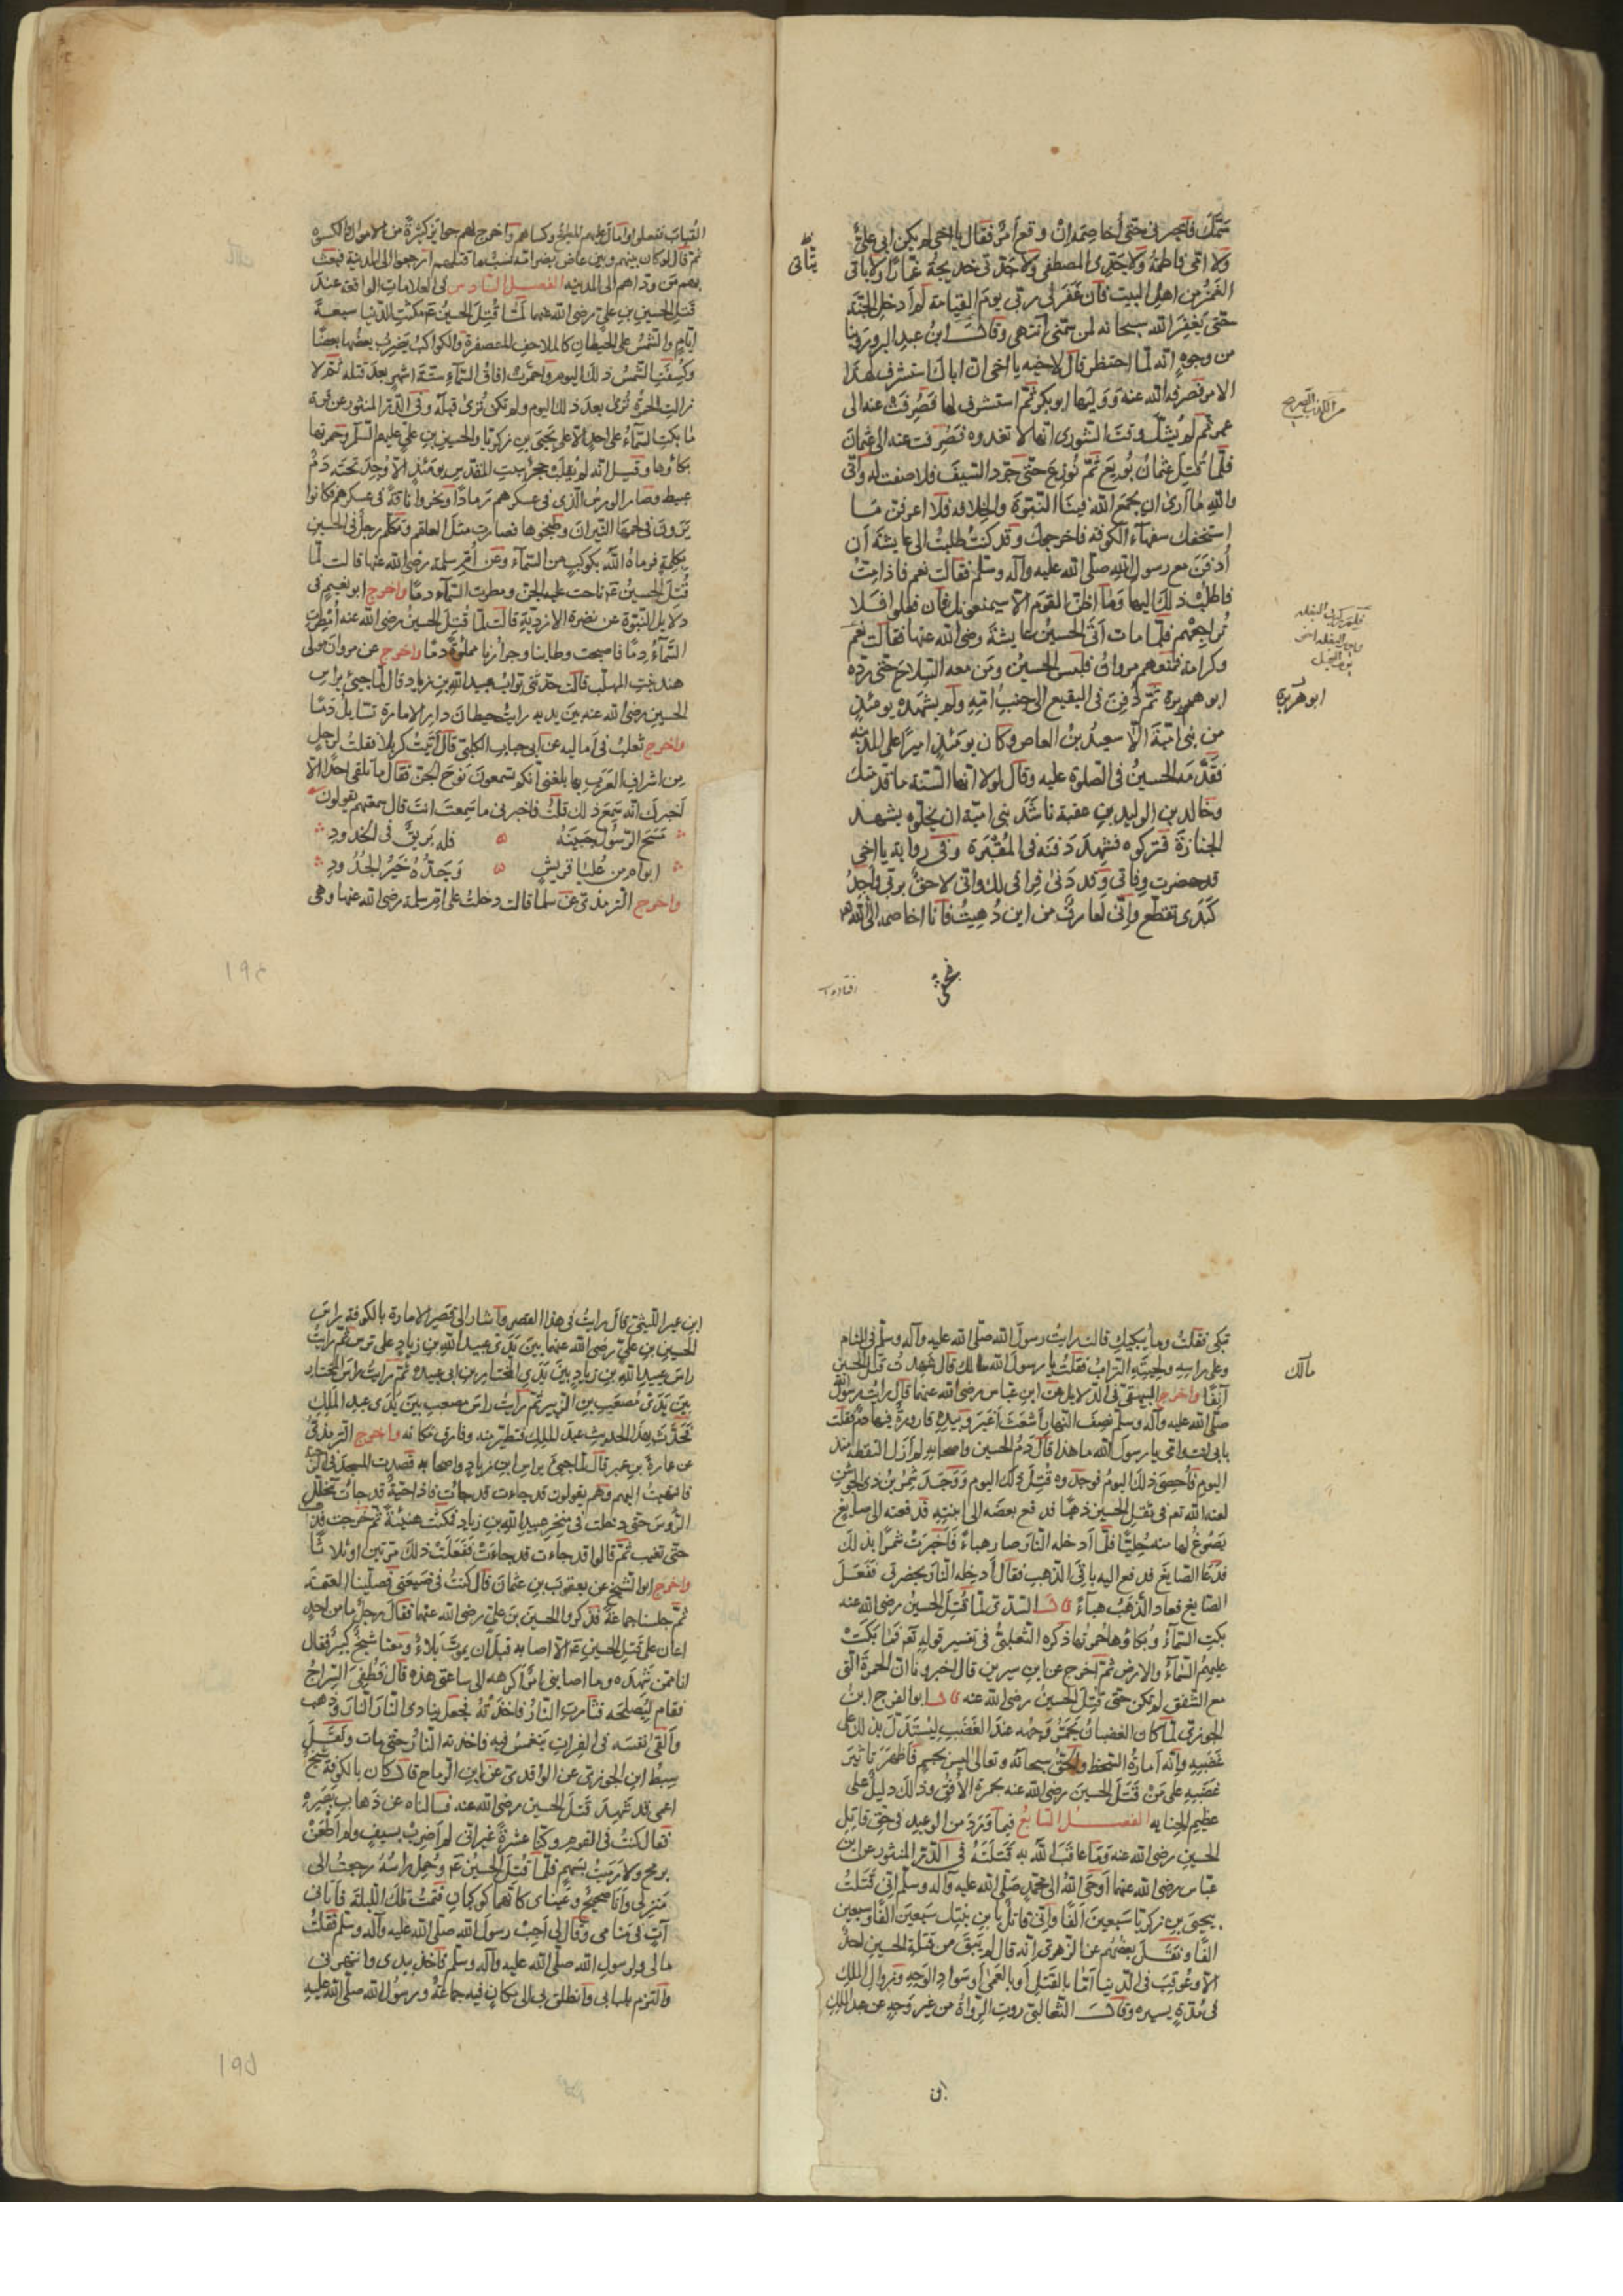 سَمَّكَ فاخبرنى حتى أخاصمه إنْ وقع أمر فقال يا اخى لم يكن ابى علىّ
ولا امّى فاطمة ولا جدّى المصطفى ولا جدّتى خديجة غمّازًا ولا ياتى
يتأتى
الغمز من اهل البيت فان غفر لى ربّى يوم القيامة لم أدخل الجنة
حتى يغفر الله سبحانه لمن سمّنى انتهى وقال ابن عبد البر وروينا
من وجوه انّه لمّا احتضر قال لاخيه يا اخى انّ اباك استشرف لهذا
الامر فصرفه الله عنه وولیها ابو بكر ثم استشرف لها فصُرِفَت عنه الى
من الكذب الصريح
عمر ثم لم يشك وقت الشورى انها لا تعدوه فصرفت عنه الى عثمان
فلما قُتِل عثمان بويع ثم نوزع حتى جرد السيف فلا صفت له وانّى
والله ما أرى ان يجمع الله فينا النبوّة والخلافه فلا اعرفن مّا
استخفك سفهاء الكوفة فاخرجوك وقد كنت طلبت الى عايشة أن
أُدفَنَ مع رسول الله صلّى الله عليه وآله وسلّم فقالت نعم فاذا متّ
فاطلب ذلك اليها وما اظنّ القوم الّا سيمنعونك فان فعلوا فلا
تراجعهم فلمّا مات أتى الحسين عايشة رضى الله عنها فقالت نعم
وكرامة فمنعهم مروان فلبس الحسين ومن معه السلاح حتى ردّه
ابو هريرة ثم دُفِنَ فى البقيع الى جنب امّه ولم يشهده يومئذٍ
ابو هريرة
من بنى اميّة الّا سعيد بن العاص وكان يومئذٍ اميرًا على المدينه
فقدّمه الحسين فى الصلوة عليه وقال لولا انها السّنة ما قدمتك
وخالد بن الوليد بن عقبة ناشد بنى اميّة ان يخلّوه يشهد
الجنازة فتركوه فشهد دفنه فى المقبرة وفى رواية يا اخى
قد حضرت وفاتى وقد دنى فراقى لك وانّى لاحق بربّى واجد
كبدى تقطع وانّى لعارف من اين دُهيتُ فانا اخاصمه الى الله
القباب ففعلوا
ثم قال لو كان بينهم وبين
بهم من ودّاهم الى المدينه الفصل السادس فى العلامات الواقعة عند
قتل الحسين بن علىّ رضى الله عنهما لمّا قُتِل الحسين ع م مكثت الدنيا سبعة
ايامٍ والشمس على الحيطان كالملاحف المعصفرة والكواكب يضرب بعضها بعضًا
وكُسِفت الشمس ذلك اليوم واحمرّت افاق السّماء ستّة اشهر بعد قتله ثم لا
زالت الحمرة تُرى بعد ذلك اليوم ولم تكن تُرى قبله وفى الدّر المنثور عن قرة
ما بكت السّماء على احدٍ الّا على يحيى بن زكريّا والحسين بن علىّ عليهم السّلام وحمرتها
بكاؤها وقيل انه لم يقلب حجر ببيت المقدس يومئذٍ الّا وُجِد تحته دم
عبيط وصار الورس الّذى فى عسكرهم رمادًا ونحروا ناقة فى عسكرهم فكانوا
يرون فى لحمها النيران وطبخوها فصارت مثل العلقم وتكلّم رجل فى الحسين
بكلمةٍ فرماه الله بكوكب من السّماء وعن أمّ سلمة رضى الله عنها قالت لمّا
قُتل الحسين ع م ناحت عليه الجن ومطرت السّماء دمًا واخرج ابو نعيم فى
دلايل النبوّة عن نضرة الازديّة قالت لمّا قتل الحسين رضى الله عنه أمطرت
السّماء دمًا فاصبحت وطابنا وجرارنا مملوّة دمًا واخرج عن مروان مولى
هند بنت المهلّب قالت حدّثنى بوّاب عبيد الله بن زياد قال لمّا جئ براس
الحسين رضى الله عنه بين يديه رايت حيطان دار الامارة تسايل دمًا
واخرج ثعلب فى أماليه عن ابى جناب الكلبىّ قال أتيت كربلا فقلت لرجل
من اشراف العرب بها بلغنى انكم تسمعون نوح الجنّ فقال ما تلقى احدًا الّا
أخبرك انّه سمع ذلك قلت فاخبرنى ما سمعت انت قال سمعتهم يقولون
مَسَحَ الرّسُولُ جَبِينَهُ فله بَرِيقٌ فى الخُدودِ
ابواه من عُلْيا قريشٍ وَجَدُّهُ خَيْرُ الجُدُودِ
واخرج الترمذى عن سلمى قالت دخلت على أمّ سلمة رضى الله عنها وهى
١٩٤
تبكى فقلت وما يبكيك قالت رايت رسول الله صلّى الله عليه وآله وسلّم فى المنام
وعلى راسه ولحيته التراب فقلت يا رسول الله مالك قال شهدت قتل الحسين
مالك
آنفًا واخرج البيهقى فى الدّلايل عن ابن عبّاس رضى الله عنهما قال رايت رسول الله
صلّى الله عليه وآله وسلّم نصف النهار أشعث أغبر وبيده قارورة فيها دم فقلت
بابى انت وامّى يا رسول الله ما هذا قال دم الحسين واصحابه لم أزل التقطه منذ
اليوم فأُحصِىَ ذلك اليوم فوجدوه قُتِل ذلك اليوم ووجد شمر بن ذى الجوشن
لعنه الله تعم فى ثقل الحسين ذهبًا فدفع بعضه الى ابنته فدفعته الى صايغ
يصوغ لها منه حُليًّا فلمّا أدخله النار صار هباءً فأخبرت شمرًا بذلك
فدعا الصايغ فدفع اليه باقى الذهب فقال أدخله النار بحضرتى ففعل
الصايغ فعاد الذهب هباءً قال السّدّى لمّا قُتل الحسين رضى الله عنه
بكت السّماء وبكاؤها حمرتها ذكره الثعلبىّ فى تفسير قوله تعم فما بكت
عليهم السّماء والارض ثم اخرج عن ابن سيرين قال اخبرونا انّ الحمرة التى
مع الشفق لم تكن حتى قُتل الحسين رضى الله عنه قال ابو الفرج ابن
الجوزى لمّا كان الغضبان يحمرّ وجهه عند الغضب ليستدلّ بذلك على
غضبه وانّه أمارة السّخط والحقّ سبحانه وتعالى ليس بجسم فأظهر تاثير
غضبه على من قتل الحسين رضى الله عنه بحمرة الأفق وذلك دليل على
عظيم الجنايه الفصل السّابع فيما ورد من الوعيد فى حقّ قاتل
الحسين رضى الله عنه وما عاقب الله به قتلته فى الدّر المنثور عن ابن
عبّاس رضى الله عنهما أوحى الله الى محمّد صلّى الله عليه وآله وسلّم انّى قتلت
بيحيى بن زكريّا سبعين ألفًا وانّى قاتل بابن بنتك سبعين الفًا وسبعين
الفًا ونقل بعضهم عن الزهرى انّه قال لم يبق من قتلة الحسين احدٌ
الّا وعُوقِب فى الدّنيا أمّا بالقتل أو بالعمى أو سواد الوجه وزوال الملك
فى مُدّةٍ يسيره وقال الثعالبى روت الرّواة من غير وجهٍ عن عبد الملك
ابن
ابن عمير اللّيثى قال رايت فى هذا القصر وأشار الى قصر الامارة بالكوفة راس
الحسين بن علىّ رضى الله عنهما بين يدى عبيد الله بن زياد على ترس ثم رايت
راس عبيد الله بن زياد بين يدى المختار بن ابى عبيده ثم رايت راس المختار
بين يدى مصعب بن الزبير ثم رايت راس مصعب بين يدى عبد الملك
فحدّثت بهذا الحديث عبد الملك فتطيّر منه وفارق مكانه واخرج الترمذى
عن عمارة بن عمير قال لمّا جئ براس ابن زياد واصحابه قصدت المسجد
فانتهيت اليهم وهم يقولون قد جاءت قد جاءت فاذا حيّة قد جاءت تخلّل
الرّوس حتى دخلت فى منخر عبيد الله بن زياد فمكثت هنيئة ثم خرجت فذهبت
حتى تغيب ثم قالوا قد جاءت قد جاءت ففعلت ذلك مرّتين او ثلاثًا
واخرج ابو الشيخ عن يعقوب بن عثمان قال كنت فى ضيعتى فصلّينا العتمة
ثم جلسنا جماعة فذكروا الحسين بن علىّ رضى الله عنهما فقال رجل ما من احدٍ
اعان على قتل الحسين ع م الّا اصابه قبل ان يموت بلاءٌ ومعنا شيخ كبير فقال
انا ممّن شهده وما اصابنى امر أكرهه الى ساعتى هذه قال فطفئ السّراج
فقام ليصلحه فثارت النار فاخذته فجعل ينادى النار النار وذهب
وألقى نفسه فى الفرات ينغمس فيه فاخذته النار حتى مات ونقل
سبط ابن الجوزى عن الواقدى عن ابن الرماح قال كان بالكوفة شيخ
اعمى قد شهد قتل الحسين رضى الله عنه فسالناه عن ذهاب بصره
فقال كنت فى القوم وكنّا عشرة غير انّى لم أضرب بسيف ولم أطعن
برمح ولا رميت بسهم فلمّا قتل الحسين ع م وحمل راسه رجعت الى
منزلى وأنا صحيح وعيناى كانهما كوكبان فنمت تلك الليلة فأتانى
آتٍ فى منامى وقال لى أجب رسول الله صلّى الله عليه وآله وسلّم فقلت
مالى ولرسول الله صلّى الله عليه وآله وسلّم فأخذ بيدى وانتهرنى
والتزم بلبابى وانطلق بى الى مكانٍ فيه جماعة ورسول الله صلّى الله عليه
١٩٥